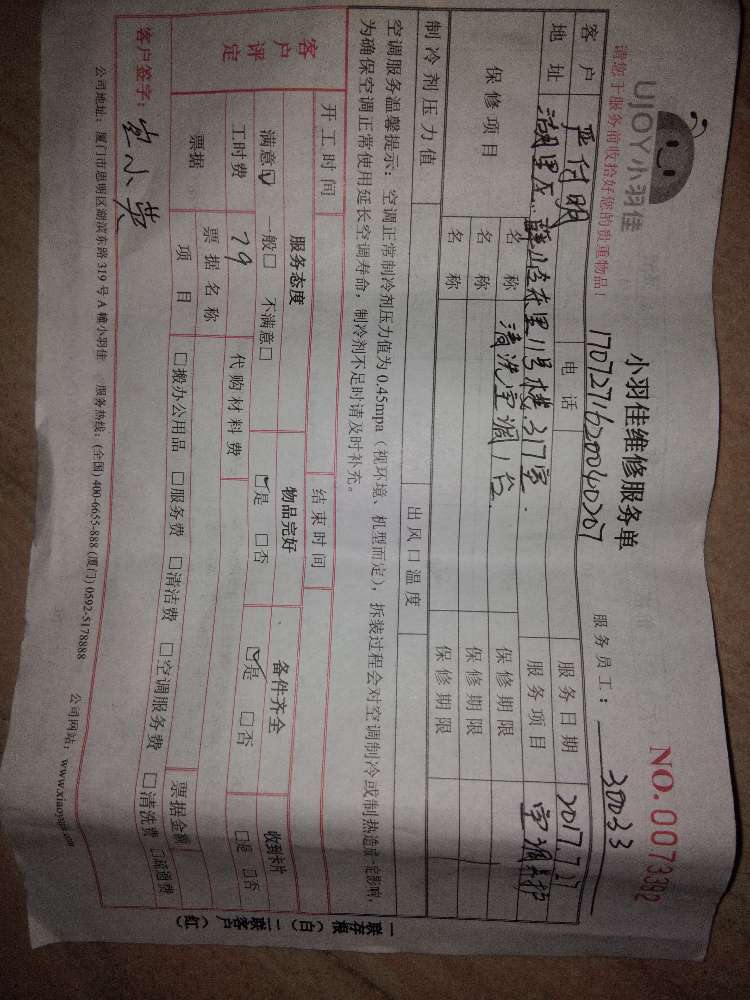 UJOY小羽佳
小羽佳维修服务单
NO. 0073392
请您于服务前收拾好您的贵重物品!
1707271620040207
服务员工: 30033
客户 严付明 电话 服务日期 2017.7.27
地址 湖里区 薛岭在里11号楼317室. 服务项目 空调维护
保修项目 名称 清洗空调1台. 保修期限
名称 保修期限
名称 保修期限
制冷剂压力值 出风口温度
空调服务温馨提示: 空调正常制冷剂压力值为0.45mpa (视环境、机型而定), 拆装过程会对空调制冷或制热造成一定影响,
为确保空调正常使用延长空调寿命, 制冷剂不足时请及时补充。
开工时间 结束时间
客户评定 服务态度 物品完好 备件齐全 收到卡片
满意☑ 一般□ 不满意□ ☑是 □否 ☑是 □否 □是 □否
工时费 79 代购材料费
票据 票据名称 票据金额
项目 □搬办公用品 □服务费 □清洁费 □空调服务费 □清洗费 □疏通费
客户签字:
公司地址: 厦门市思明区湖滨东路319号A幢小羽佳 服务热线: (全国) 400-6655-888 (厦门) 0592-5178888 公司网站: www.xiaoyujia.com
一联存根(白) 二联客户(红)